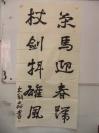 策馬迎春歸
杖劍揖雄風